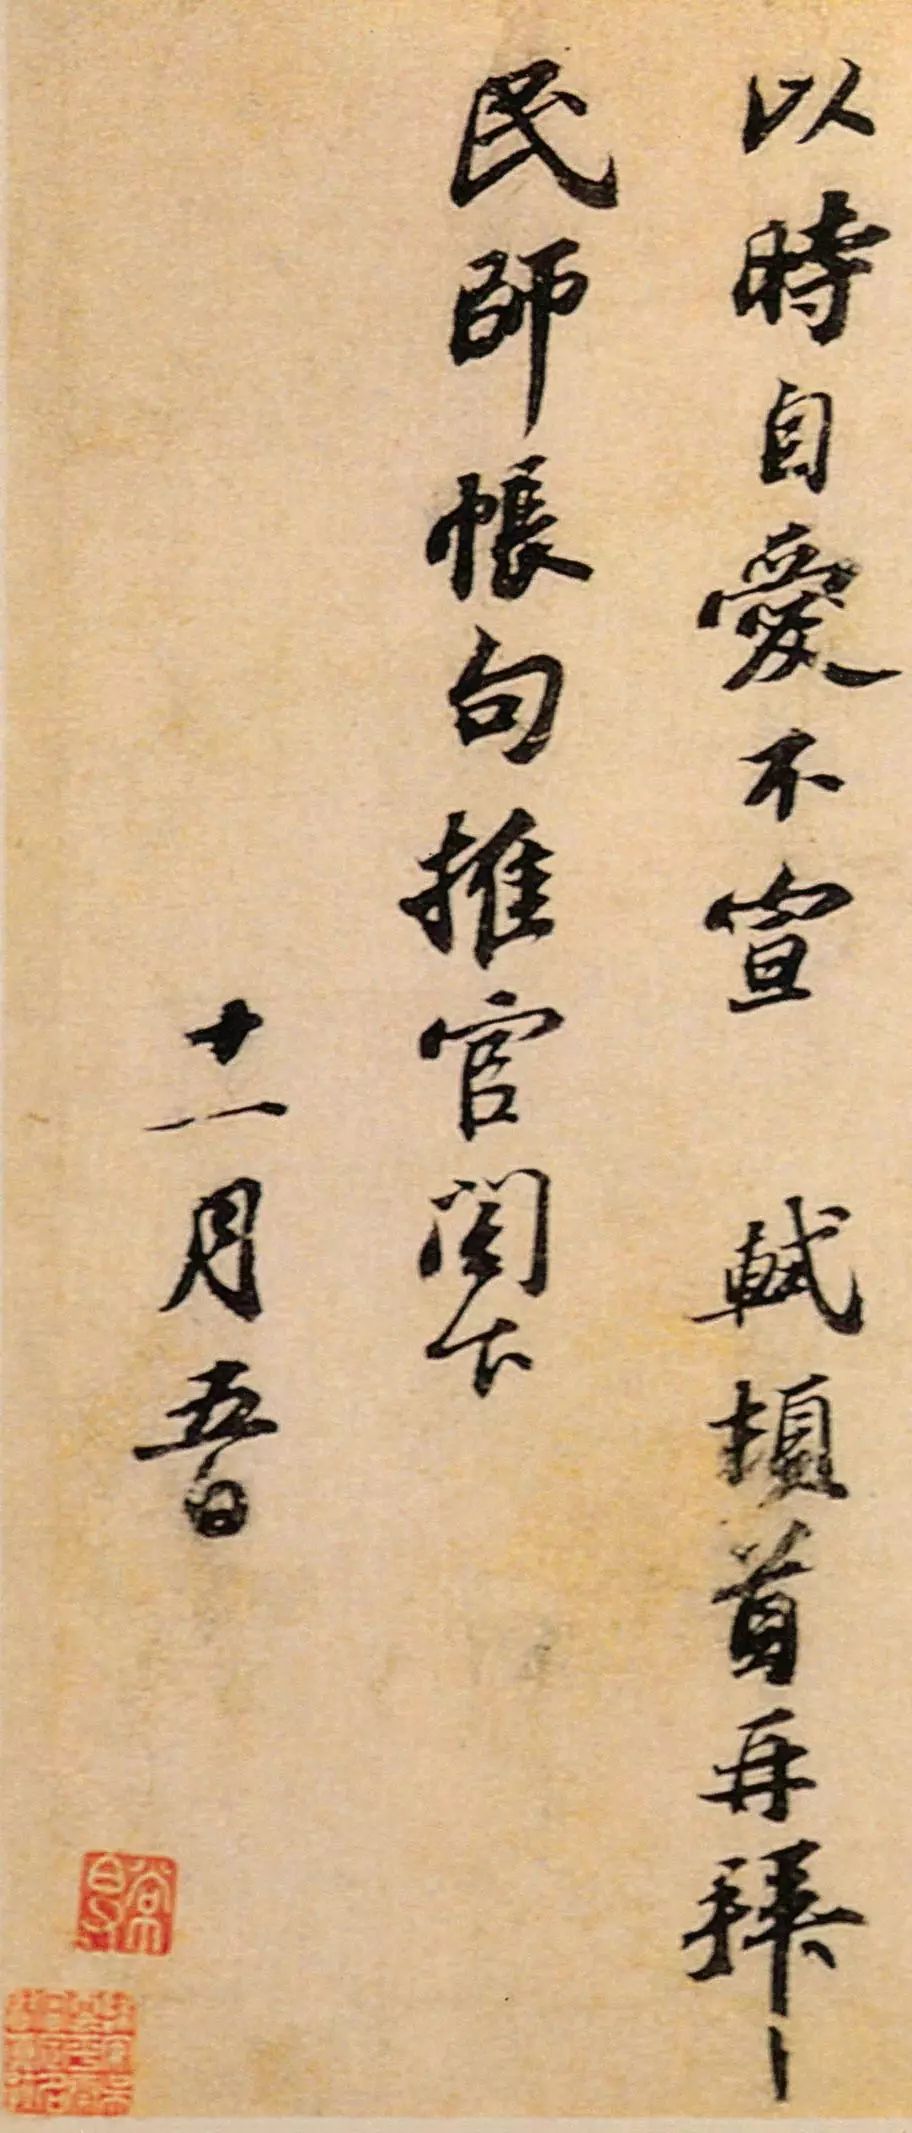 以時自愛不宣 軾頓首再拜
民師帳句推官閣下
十一月五日